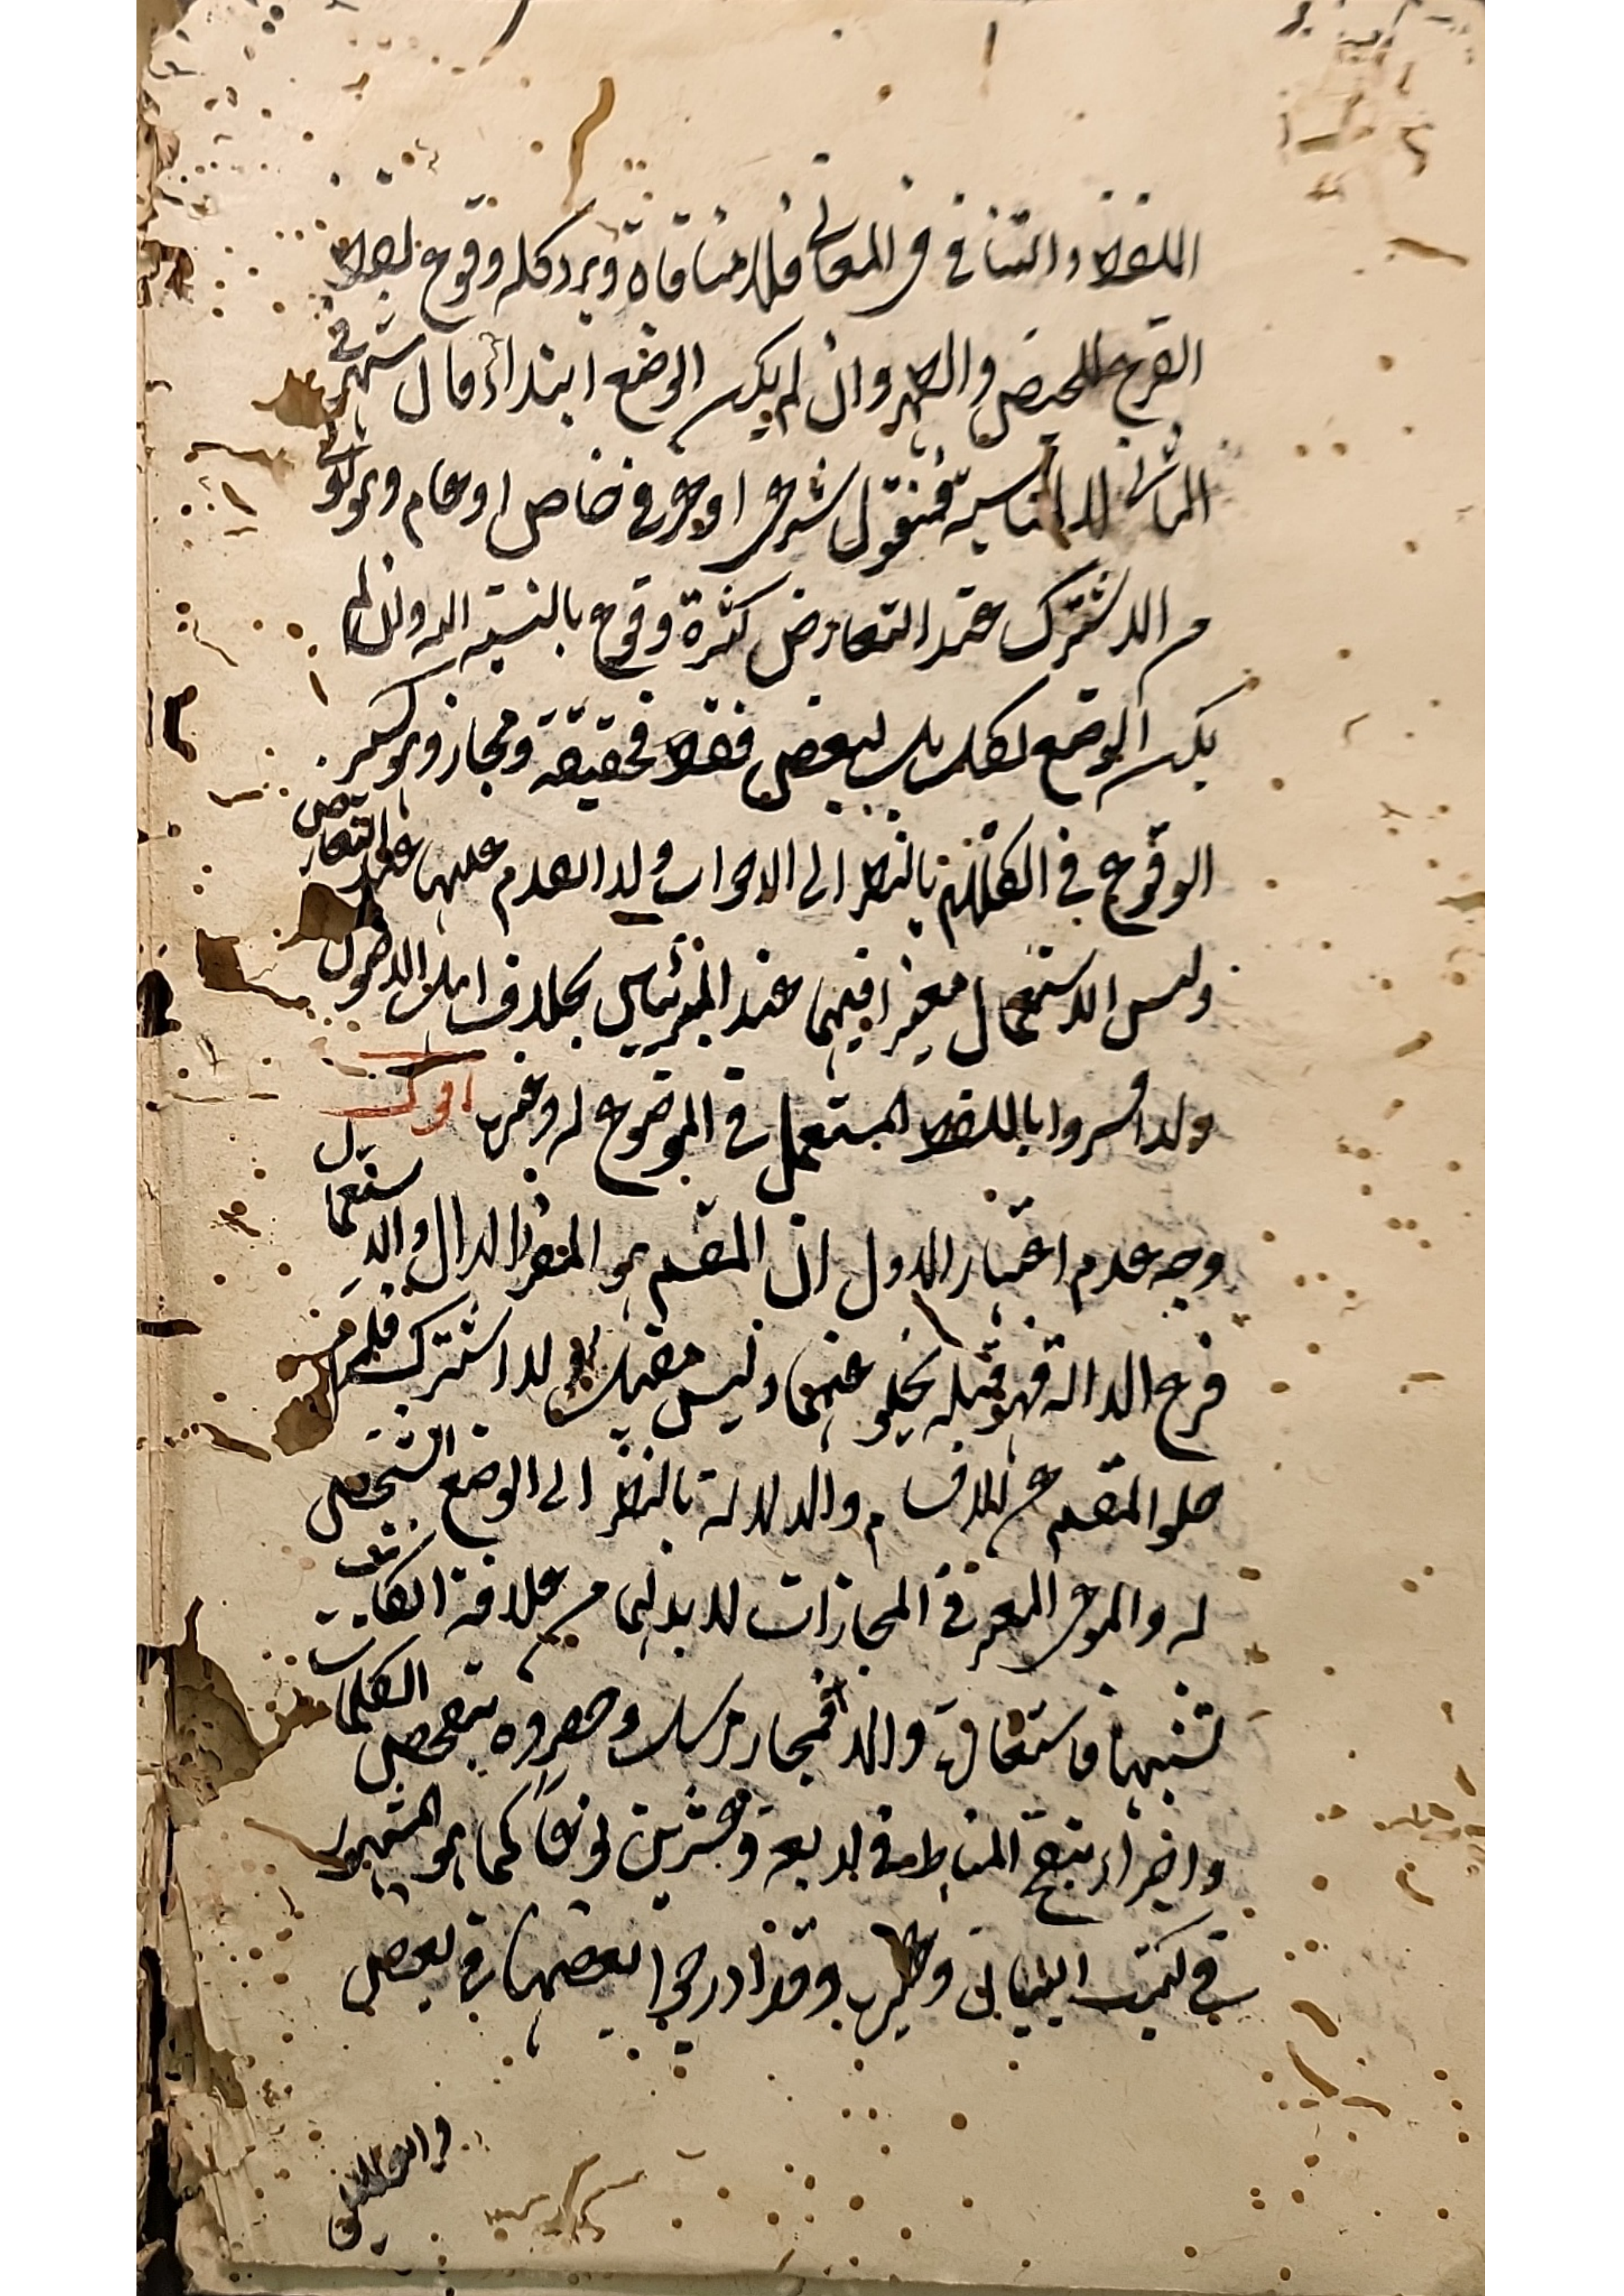 اللفظ والتنافي في المعاني فلا منافاة ويرد كله وقوع لفظ
القرء للحيض والطهر وان لم يكن الوضع ابتداء فان اشتهر في
الثاني لا لمناسبة فمنقول شرعي او عرفي خاص او عام وهو اولى
من الاشتراك عند التعارض لكثرة وقوع بالنسبة اليه وان لم
يكن الوضع لكل بل لبعض فقط فحقيقة ومجاز وهو كثير
الوقوع في الكلام بالنظر الى الاخوات ولذا تقدم عليها عند التعارض
وليس الاستعمال معتبرا فيهما عند الميزانيين بخلاف اهل الاصول
ولذا فسروا باللفظ المستعمل في الموضوع له وغيره اقول
وجه عدم اعتبار الاول ان المقسم هو المفرد الدال والاستعمال
فرع الدالة فهو قبله يخلو عنهما وليس مقيدا لاشتراك فلزم
خلو المقسم عن الاقسام والدلالة بالنظر الى الوضع الشخصي
له والنوعي المعتبر في المجازات لا بد لهما من علاقة ان كانت
تشبيها فاستعارة والا فمجاز مرسل وحصروه بتفحص الكلمات
واخراء بتنقيح المناط في اربعة وعشرين نوعا كما هو المشهور
في كتب البياني وغيره وقد ادرجوا بعضها في بعض